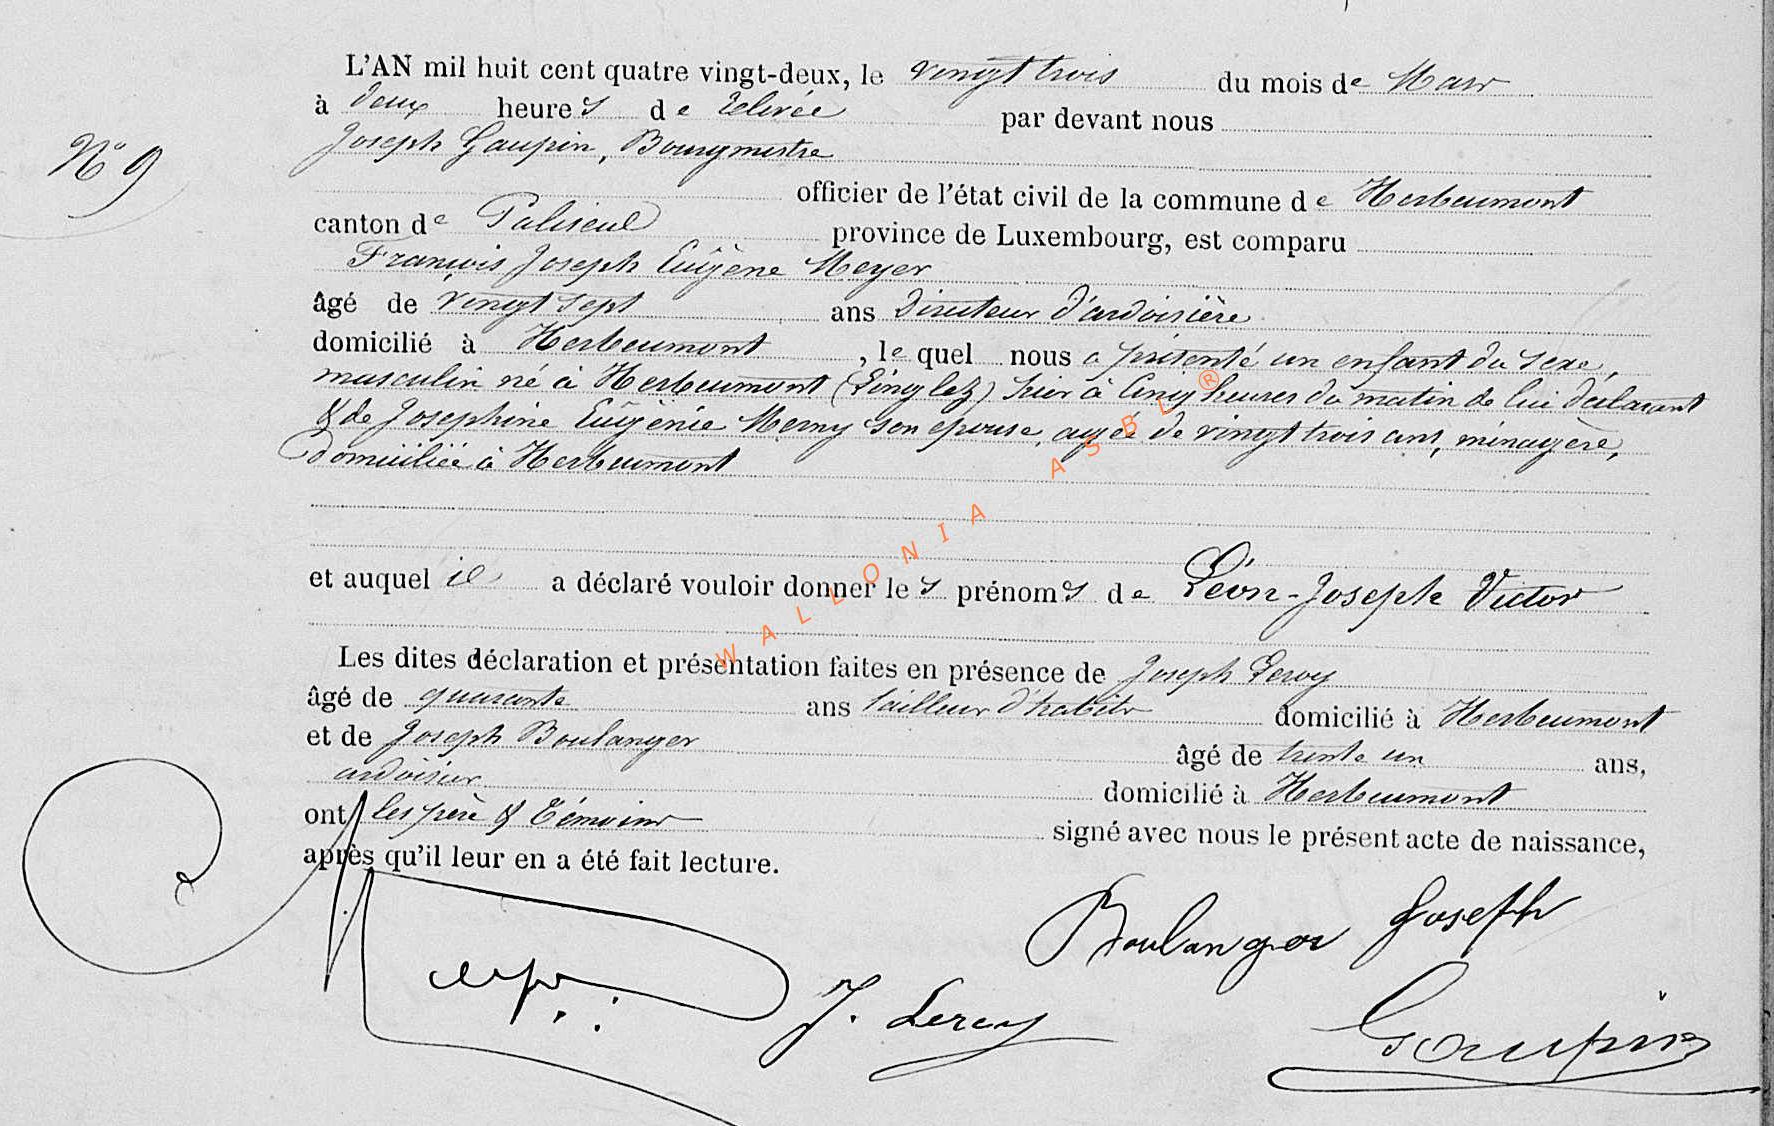 L'AN mil huit cent quatre vingt-deux, le vingt trois du mois de Mars
à deux heures de relevée par devant nous
N° 9
Joseph Gaupin, Bourgmestre
officier de l'état civil de la commune de Herbeumont
canton de Paliseul province de Luxembourg, est comparu
François Joseph Eugène Meyer
âgé de vingt sept ans Directeur d'ardoisière
domicilié à Herbeumont, le quel nous a présenté un enfant du sexe,
masculin né à Herbeumont (Linglez) hier à cinq heures du matin de lui déclarant
& de Josephine Eugénie Merny son epouse, agée de vingt trois ans, ménagère,
domiciliée à Herbeumont
et auquel il a déclaré vouloir donner les prénoms de Léon-Joseph Victor
Les dites déclaration et présentation faites en présence de Joseph Leroy
âgé de quarante ans tailleur d'habits domicilié à Herbeumont
et de Joseph Boulanger âgé de trente un ans,
ardoisier domicilié à Herbeumont
ont les père & témoins signé avec nous le présent acte de naissance,
après qu'il leur en a été fait lecture.
Boulanger Joseph
J. Leroy
Gaupin
WALLONIA ASBL ®